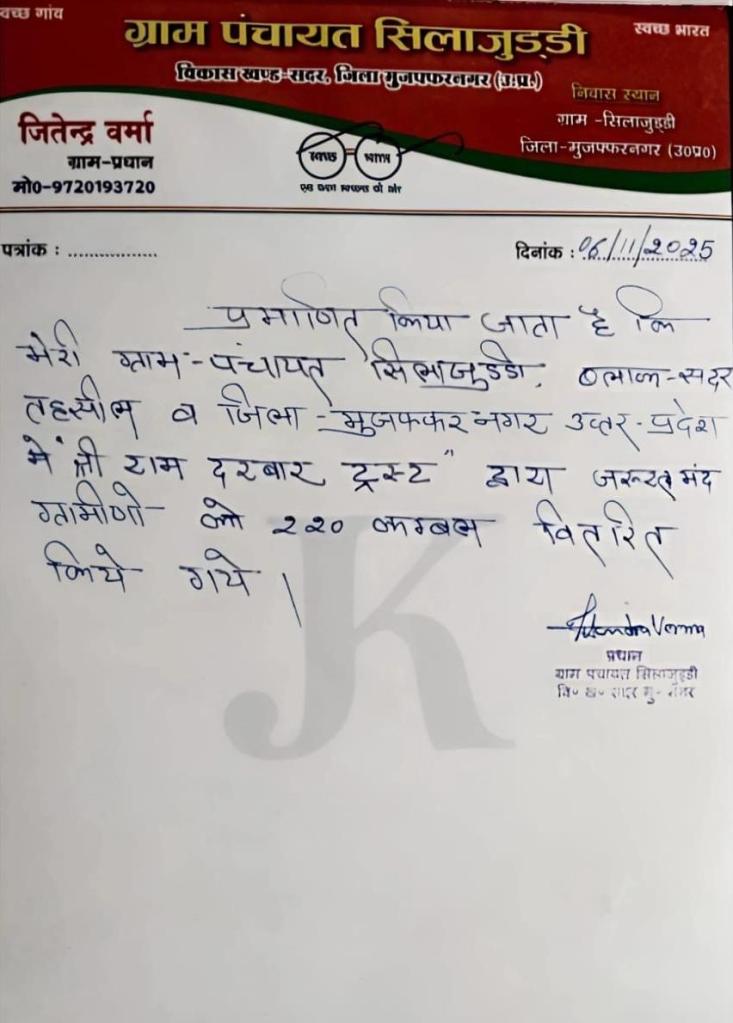 वच्छ गांव
स्वच्छ भारत
ग्राम पंचायत सिलाजुड्डी
विकास खण्ड-सदर, जिला मुजफ्फरनगर (उ.प्र.)
निवास स्थान
ग्राम -सिलाजुड्डी
जिला-मुजफ्फरनगर (उ०प्र०)
जितेन्द्र वर्मा
ग्राम-प्रधान
मो०-9720193720
स्वच्छ भारत
एक कदम स्वच्छता की ओर
पत्रांक : ................
दिनांक : 06/11/2025
प्रमाणित किया जाता है कि
मेरी ग्राम-पंचायत सिलाजुड्डी, ब्लाक-सदर
तहसील व जिला-मुजफ्फरनगर उत्तर-प्रदेश
में "श्री राम दरबार ट्रस्ट" द्वारा जरूरतमंद
ग्रामीणो को 220 कम्बल वितरित
किये गये।
Jitendra Verma
प्रधान
ग्राम पंचायत सिलाजुड्डी
वि० ख० सदर मु० नगर
JK